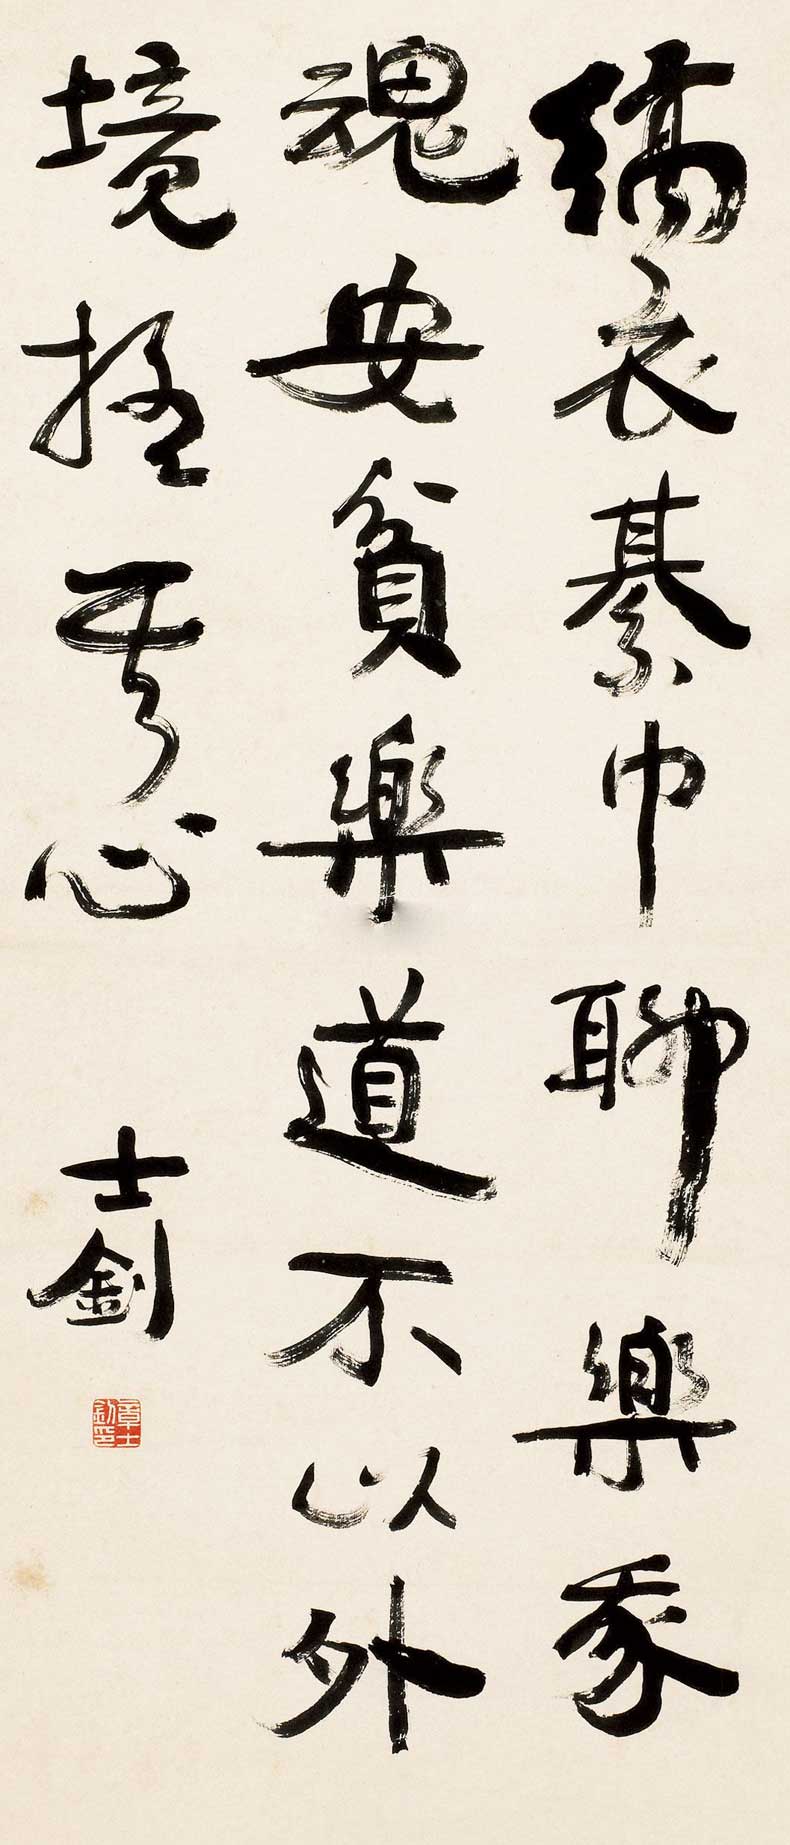 縞衣綦巾聊樂我
魂安貧樂道不以外
境其心
士釗
章士釗印